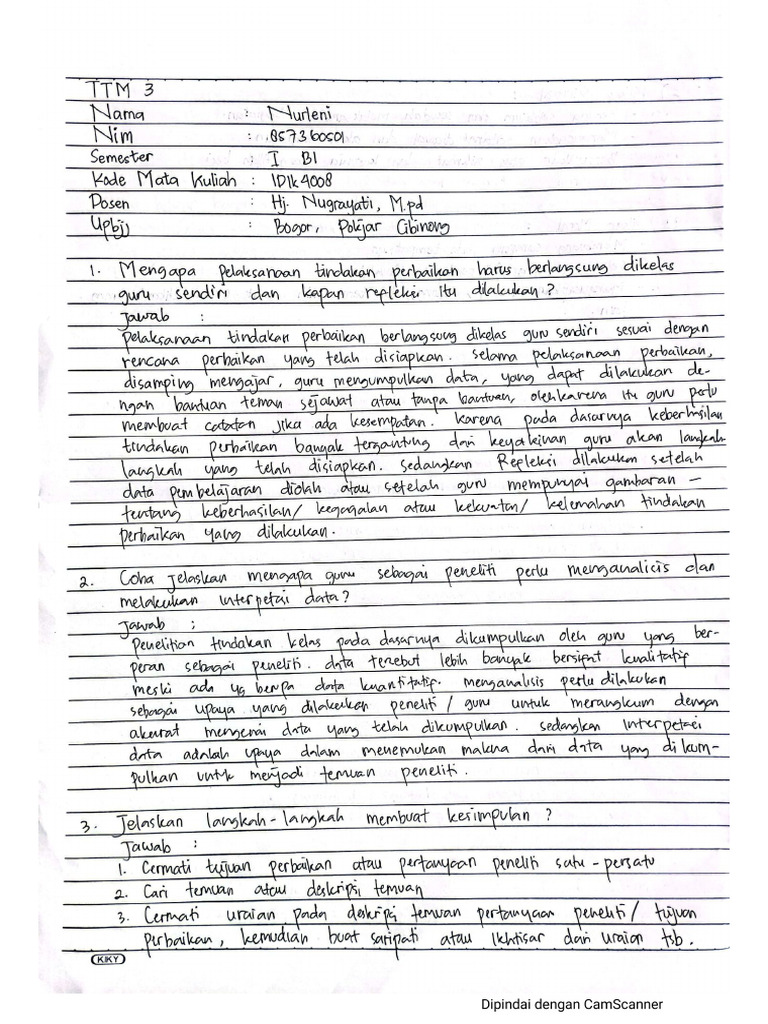 TTM 3
Nama : Nurleni
Nim : 857360501
Semester : I BI
Kode Mata Kuliah : IDIK4008
Dosen : Hj. Nugrayati, M.pd
Upbjj : Bogor, Pokjar Cibinong
1. Mengapa pelaksanaan tindakan perbaikan harus berlangsung dikelas
guru sendiri dan kapan repleksi itu dilakukan ?
Jawab :
pelaksanaan tindakan perbaikan berlangsung dikelas guru sendiri sesuai dengan
rencana perbaikan yang telah disiapkan. selama pelaksanaan perbaikan,
disamping mengajar, guru mengumpulkan data, yang dapat dilakukan de-
ngan bantuan teman sejawat atau tanpa bantuan, oleh karena itu guru perlu
membuat catatan jika ada kesempatan. karena pada dasarnya keberhasilan
tindakan perbaikan banyak tergantung dari keyakinan guru akan langkah-
langkah yang telah disiapkan. sedangkan Repleksi dilakukan setelah
data pembelajaran diolah atau setelah guru mempunyai gambaran -
tentang keberhasilan/ kegagalan atau kekuatan/ kelemahan tindakan
perbaikan yang dilakukan.
2. Coba jelaskan mengapa guru sebagai peneliti perlu menganalicis dan
melakukan interpetasi data?
Jawab :
Penelitian tindakan kelas pada dasarnya dikumpulkan oleh guru yang ber-
peran sebagai peneliti. data tersebut lebih banyak bersipat kualitatif
meski ada yg berupa data kuantitatif. menganalisis perlu dilakukan
sebagai upaya yang dilakukan peneliti/ guru untuk merangkum dengan
akurat mengenai data yang telah dikumpulkan. sedangkan interpetasi
data adalah upaya dalam menemukan makna dari data yang dikum-
pulkan untuk menjadi temuan peneliti.
3. Jelaskan langkah-langkah membuat kesimpulan ?
Jawab :
1. Cermati tujuan perbaikan atau pertanyaan peneliti satu-persatu
2. Cari temuan atau deskripsi temuan
3. Cermati uraian pada deskripsi temuan pertanyaan peneliti/ tujuan
perbaikan, kemudian buat saripati atau Ikhtisar dari uraian tsb.
KIKY
Dipindai dengan CamScanner